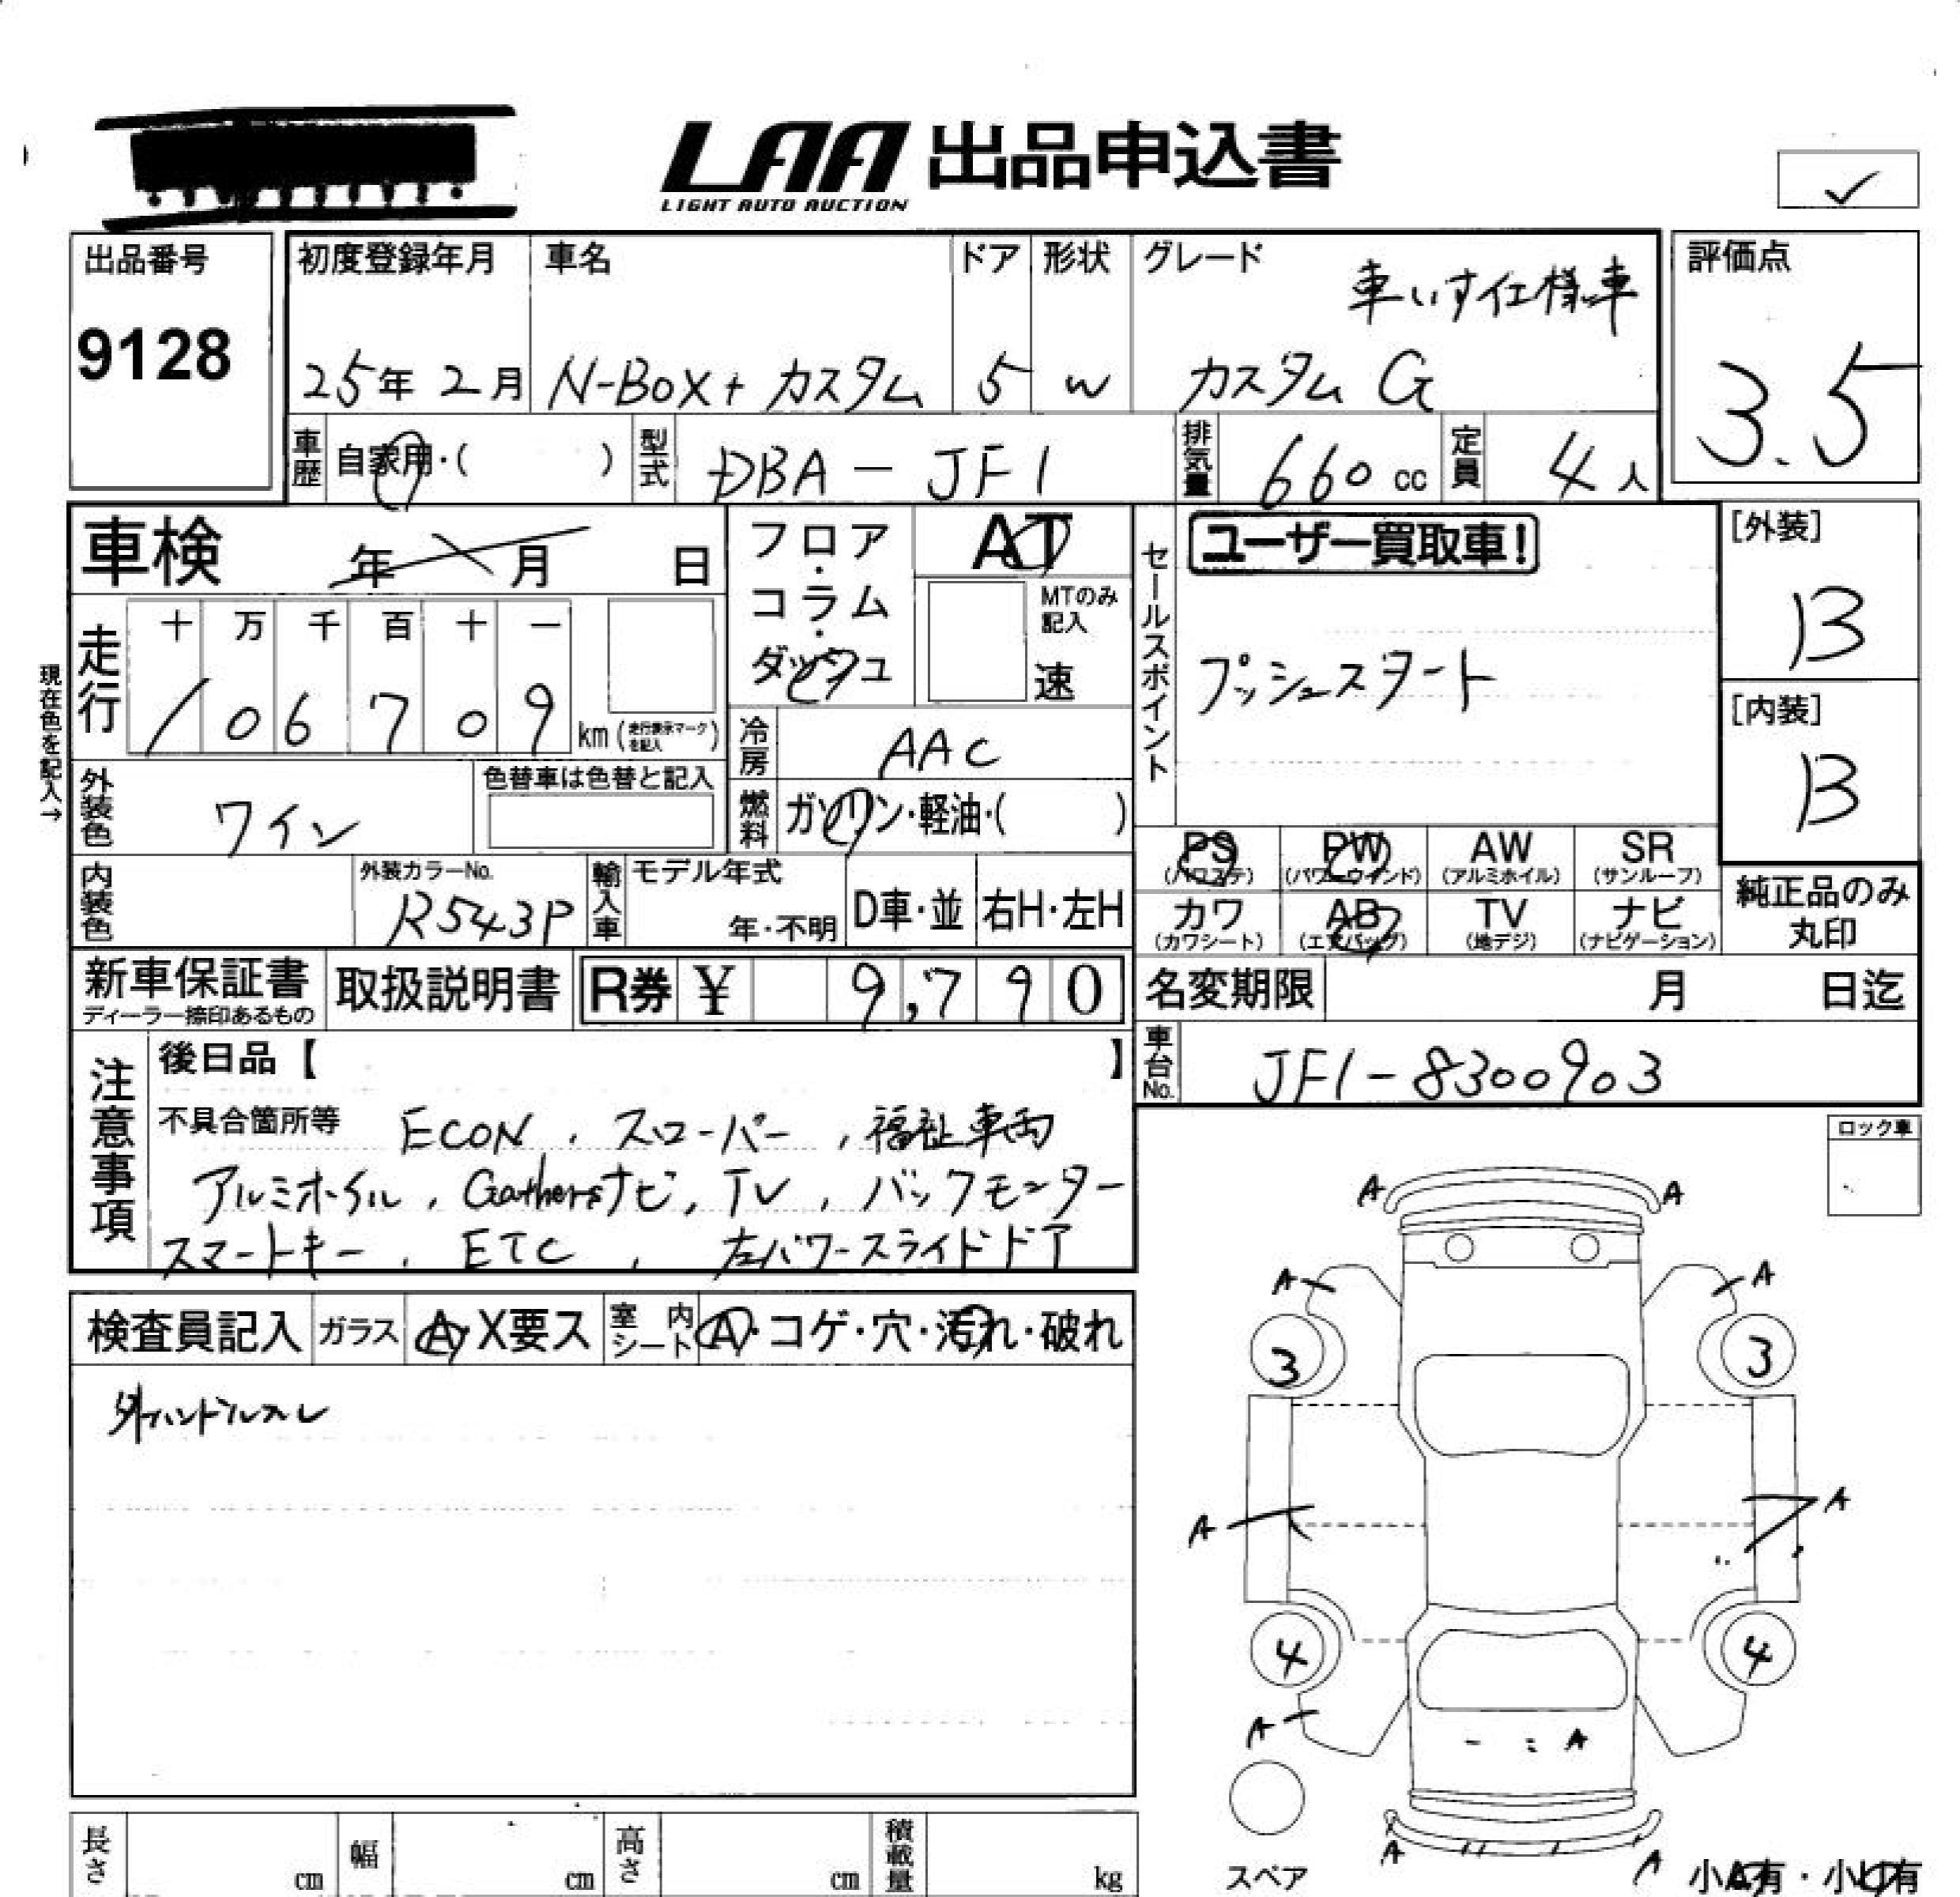 LAA 出品申込書
LIGHT AUTO AUCTION
✓
出品番号
9128
初度登録年月
25年 2月
車名
N-BOX+ カスタム
ドア
5
形状
W
グレード
車いす仕様車
カスタム G
評価点
3.5
車歴 自家用・( )
型式 DBA-JF1
排気量 660 cc
定員 4人
車検 年 月 日
フロア・コラム・ダッシュ
AT
MTのみ記入
速
セールスポイント
ユーザー買取車!
プッシュスタート
[外装]
B
[内装]
B
現在色を記入→
走行
十 万 千 百 十 一
1 0 6 7 0 9 km (走行表示マークを記入)
冷房 AAC
外装色 ワイン
色替車は色替と記入
燃料 ガソリン・軽油・( )
PS (パワステ) PW (パワーウインド) AW (アルミホイル) SR (サンルーフ)
カワ (カワシート) AB (エアバッグ) TV (地デジ) ナビ (ナビゲーション)
純正品のみ
丸印
内装色
外装カラーNo.
R543P
輸入車 モデル年式
年・不明
D車・並 右H・左H
新車保証書
ディーラー捺印あるもの
取扱説明書
R券 ¥ 9,790
名変期限 月 日迄
車台No. JF1-8300903
注意事項
後日品【 】
不具合箇所等 ECON, スローパー, 福祉車両
アルミホイル, Gathersナビ, TV, バックモニター
スマートキー, ETC, 左パワースライドドア
ロック車
検査員記入 ガラス A・X要ス 室内シート A・コゲ・穴・汚れ・破れ
外ハンドルスレ
A A
A A
3 3
A A
4 4
A
A
A A
スペア
小A有・小U有
長さ cm 幅 cm 高さ cm 積載量 kg